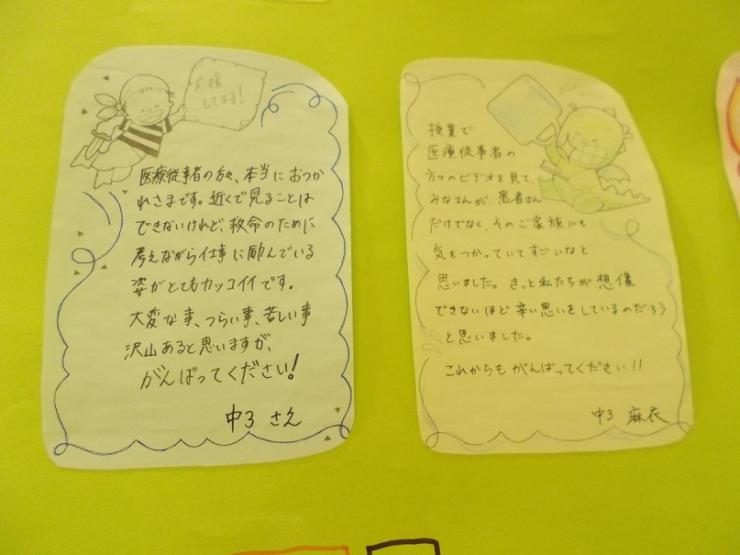 応援
してるよ!
医療従事者の方々、本当におつか
れさまです。近くで見ることは
できないけれど、救命のために
考えながら仕事に励んでいる
姿がとてもカッコイイです。
大変な事、つらい事、苦しい事
沢山あると思いますが、
がんばってください!
中3 さえ
授業で
医療従事者の
方々のビデオを見て、
みなさんが、患者さん
だけでなく、そのご家族にも
気をつかっていてすごいなと
思いました。きっと私たちが想像
できないほど辛い思いをしているのだろう
と思いました。
これからもがんばってください!!
中3 麻衣